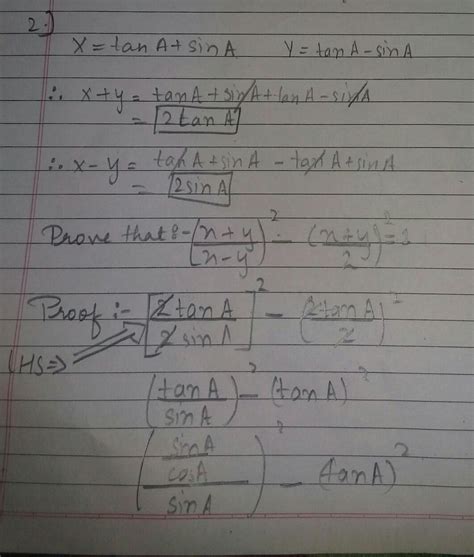 2.)
X = tan A + sin A    Y = tan A - sin A
∴ x + y = tan A + sin A + tan A - sin A
= 2 tan A
∴ x - y = tan A + sin A - tan A + sin A
= 2 sin A
Prove that :- (x + y / x - y)² - (x + y / 2)² = 1
Proof :- [2 tan A / 2 sin A]² - (2 tan A / 2)²
LHS ⇒
(tan A / sin A)² - (tan A)²
(sin A / cos A / sin A)² - (tan A)²